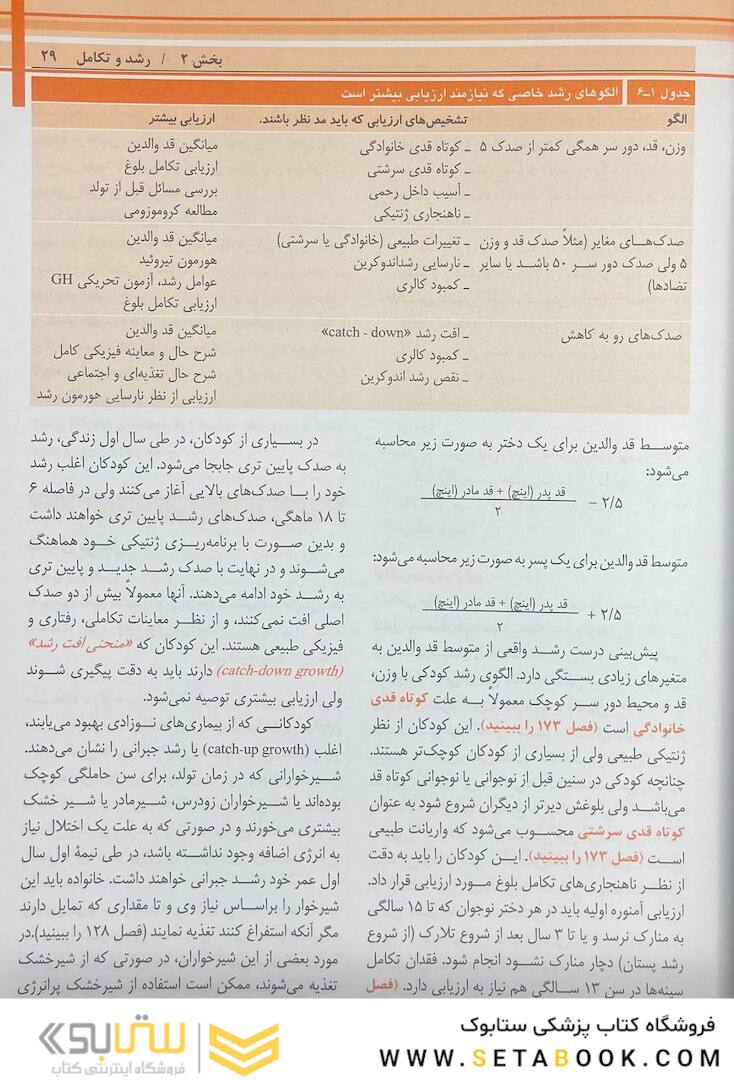 بخش ۲ / رشد و تکامل ۲۹
جدول ۱-۶ الگوهای رشد خاصی که نیازمند ارزیابی بیشتر است
الگو تشخیص‌های ارزیابی که باید مد نظر باشند. ارزیابی بیشتر
وزن، قد، دور سر همگی کمتر از صدک ۵ ـ کوتاه قدی خانوادگی میانگین قد والدین
ـ کوتاه قدی سرشتی ارزیابی تکامل بلوغ
ـ آسیب داخل رحمی بررسی مسائل قبل از تولد
ـ ناهنجاری ژنتیکی مطالعه کروموزومی
صدک‌های مغایر (مثلاً صدک قد و وزن ـ تغییرات طبیعی (خانوادگی یا سرشتی) میانگین قد والدین
۵ ولی صدک دور سر ۵۰ باشد یا سایر ـ نارسایی رشداندوکرین هورمون تیروئید
تضادها) ـ کمبود کالری عوامل رشد، آزمون تحریکی GH
ارزیابی تکامل بلوغ
صدک‌های رو به کاهش ـ افت رشد «catch - down» میانگین قد والدین
ـ کمبود کالری شرح حال و معاینه فیزیکی کامل
ـ نقص رشد اندوکرین شرح حال تغذیه‌ای و اجتماعی
ارزیابی از نظر نارسایی هورمون رشد
متوسط قد والدین برای یک دختر به صورت زیر محاسبه
می‌شود:
قد پدر (اینچ) + قد مادر (اینچ)
۲
− ۲/۵
متوسط قد والدین برای یک پسر به صورت زیر محاسبه می‌شود:
قد پدر (اینچ) + قد مادر (اینچ)
۲
+ ۲/۵
پیش‌بینی درست رشد واقعی از متوسط قد والدین به
متغیرهای زیادی بستگی دارد. الگوی رشد کودکی با وزن،
قد و محیط دور سر کوچک معمولاً به علت کوتاه قدی
خانوادگی است (فصل ۱۷۳ را ببینید). این کودکان از نظر
ژنتیکی طبیعی ولی از بسیاری از کودکان کوچک‌تر هستند.
چنانچه کودکی در سنین قبل از نوجوانی یا نوجوانی کوتاه قد
می‌باشد ولی بلوغش دیرتر از دیگران شروع شود به عنوان
کوتاه قدی سرشتی محسوب می‌شود که واریانت طبیعی
است (فصل ۱۷۳ را ببینید). این کودکان را باید به دقت
از نظر ناهنجاری‌های تکامل بلوغ مورد ارزیابی قرار داد.
ارزیابی آمنوره اولیه باید در هر دختر نوجوان که تا ۱۵ سالگی
به منارک نرسد و یا تا ۳ سال بعد از شروع تلارک (از شروع
رشد پستان) دچار منارک نشود انجام شود. فقدان تکامل
سینه‌ها در سن ۱۳ سالگی هم نیاز به ارزیابی دارد. (فصل
در بسیاری از کودکان، در طی سال اول زندگی، رشد
به صدک پایین تری جابجا می‌شود. این کودکان اغلب رشد
خود را با صدک‌های بالایی آغاز می‌کنند ولی در فاصله ۶
تا ۱۸ ماهگی، صدک‌های رشد پایین تری خواهند داشت
و بدین صورت با برنامه‌ریزی ژنتیکی خود هماهنگ
می‌شوند و در نهایت با صدک رشد جدید و پایین تری
به رشد خود ادامه می‌دهند. آنها معمولاً بیش از دو صدک
اصلی افت نمی‌کنند، و از نظر معاینات تکاملی، رفتاری و
فیزیکی طبیعی هستند. این کودکان که «منحنی افت رشد»
(catch-down growth) دارند باید به دقت پیگیری شوند
ولی ارزیابی بیشتری توصیه نمی‌شود.
کودکانی که از بیماری‌های نوزادی بهبود می‌یابند،
اغلب (catch-up growth) یا رشد جبرانی را نشان می‌دهند.
شیرخوارانی که در زمان تولد، برای سن حاملگی کوچک
بوده‌اند یا شیرخواران زودرس، شیرمادر یا شیر خشک
بیشتری می‌خورند و در صورتی که به علت یک اختلال نیاز
به انرژی اضافه وجود نداشته باشد، در طی نیمهٔ اول سال
اول عمر خود رشد جبرانی خواهند داشت. خانواده باید این
شیرخوار را براساس نیاز وی و تا مقداری که تمایل دارند
مگر آنکه استفراغ کنند تغذیه نمایند (فصل ۱۲۸ را ببینید).در
مورد بعضی از این شیرخواران، در صورتی که از شیرخشک
تغذیه می‌شوند، ممکن است استفاده از شیرخشک پرانرژی
فروشگاه کتاب پزشکی ستابوک
WWW.SETABOOK.COM
ستابوک
فروشگاه اینترنتی کتاب